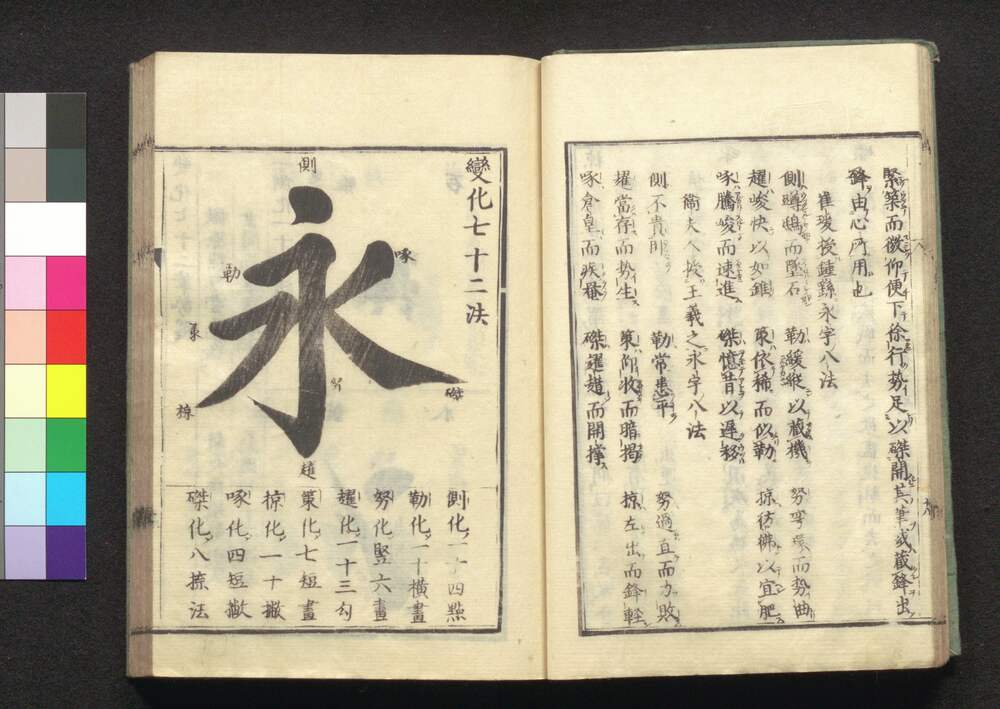 緊築而微仰便下徐行勢足以磔開其筆或藏鋒出
鋒由心所用也
崔璦後鍾繇永字八法
側蹲鴟而墜石 勒緩縱以藏機 努彎環而勢曲
趯峻快以如錐 策依稀而似勒 掠彷彿以宜肥
啄騰峻而速進 磔憶昔以遲移
衛夫人授王羲之永字八法
側不貴 勒常患平 努過直而力敗
趯當存而勢生 策仰收而暗揭 掠左出而鋒輕
啄倉皇而疾罨 磔趯趞而開撑
變化七十二法
側
勒
努
趯
策
掠
啄
磔
永
側化二十四點
勒化二十橫畫
努化豎六畫
趯化一十三勾
策化七短畫
掠化一十撇
啄化四短撇
磔化八捺法